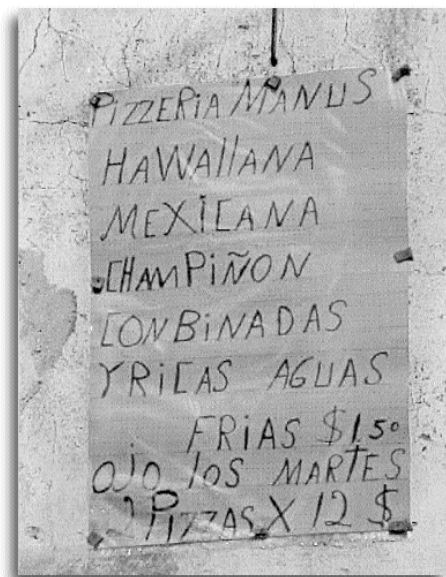 PIZZERIA MANUS
HAWAIIANA
MEXICANA
CHAMPIÑON
CONBINADAS
YRICAS AGUAS
FRIAS $1.50
OJO LOS MARTES
2 PIZZAS X 12 $